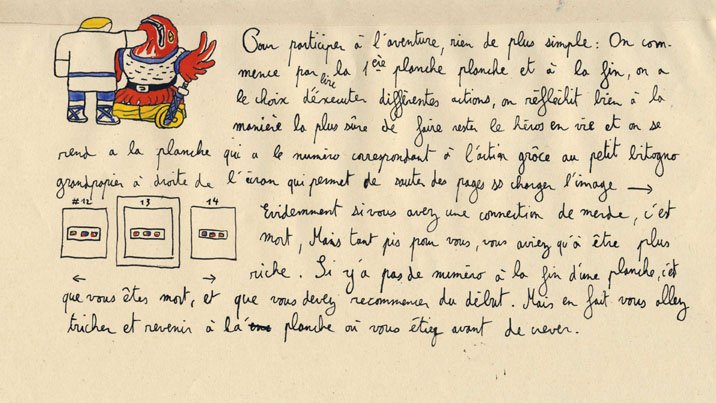 Pour participer à l'aventure, rien de plus simple : On com-
mence par lire la 1ère planche planche et à la fin, on a
le choix d'éxecuter différentes actions, on réfléchit bien à la
manière la plus sûre de faire rester le héros en vie et on se
rend a la planche qui a le numéro correspondant à l'action grâce au petit bitogno
grandpapier à droite de l'écran qui permet de sauter des pages ss charger l'image →
#12 13 14
Evidemment si vous avez une connection de merde, c'est
mort, Mais tant pis pour vous, vous aviez qu'à être plus
riche. Si y'a pas de numéro à la fin d'une planche, c'est
← →
que vous êtes mort, et que vous devez recommencer du début. Mais en fait vous allez
tricher et revenir à la planche où vous étiez avant de crever.